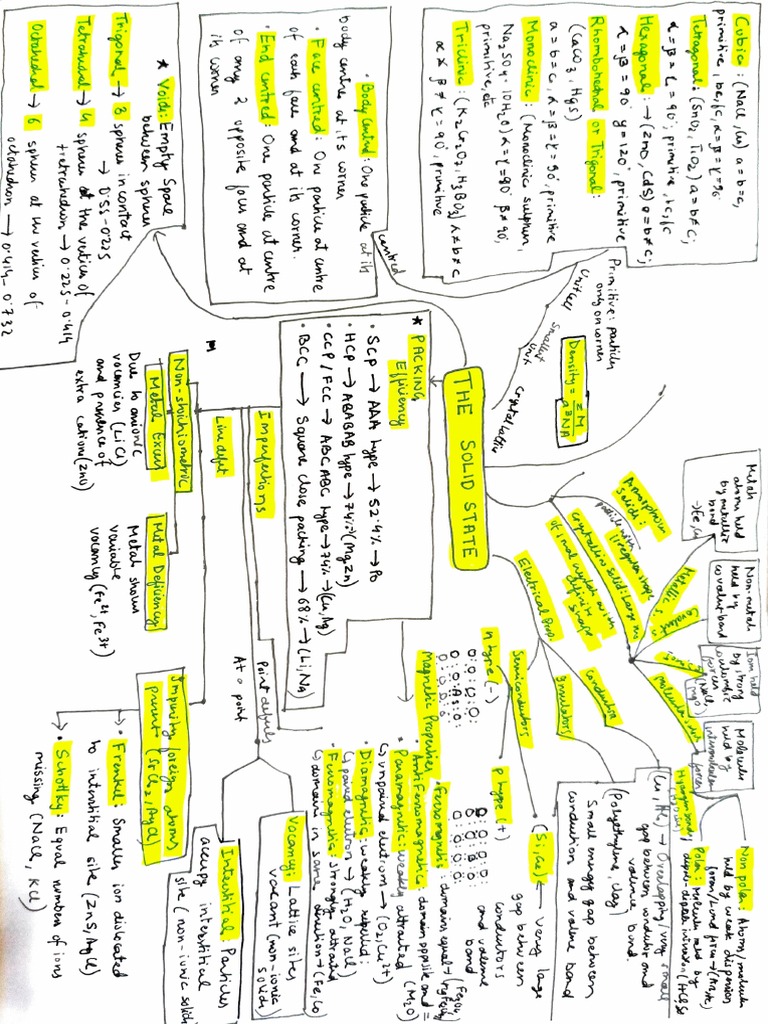 THE SOLID STATE
Cubic: (NaCl, Cu) a=b=c,
primitive, bc, fc, α=β=γ=90
Tetragonal: (SnO2, TiO2) a=b≠c;
α=β=γ=90°; primitive, bc, fc
Hexagonal: → (ZnO, CdS) a=b≠c;
α=β=90° γ=120°, primitive
Rhombohedral or Trigonal:
(CaCO3, HgS)
Monoclinic: (Monoclinic sulphur,
a=b=c, α=β=γ=90°, primitive
Na2SO4·10H2O) α=γ=90° β≠90°,
primitive, etc
Triclinic: (K2Cr2O7, H3BO3) a≠b≠c,
α≠β≠γ=90°, primitive
Primitive: particles
only on corner
Unit cell
Smallest
unit
crystal lattice
centred
Density = ZM
a3NA
• Body Centred: One particle at its
body centre at its corner
• Face centred: One particle at centre
of each face and at its corner.
• End centred: One particle at centre
of any 2 opposite faces and at
its corner
★ Void: Empty Space
between spheres
Trigonal → 3 spheres in contact
→ 0.155-0.225
Tetrahedral → 4 spheres at the vertices of
tetrahedron → 0.225-0.414
Octahedral → 6 spheres at the vertices of
octahedron → 0.414-0.732
★ PACKING
Efficiency
• SCP → AAA type → 52.4% → Po
• HCP → ABABAB type → 74% → (Mg, Zn)
• CCP/FCC → ABCABC type → 74% → (Cu, Ag)
• BCC → Square close packing → 68% → (Li, Na)
Imperfections
Line defect
Non-stoichiometric
Metal Excess
Due to anionic
vacancies (LiCl)
and presence of
extra cation (ZnO)
Metal Deficiency
Metal shows
variable
vacancy (Fe2+, Fe3+)
Point defects
At a point
Impurity, foreign atoms
present (SrCl2, AgCl)
→ Frenkel: Smaller ion dislocated
to interstitial site (ZnS, AgCl)
→ Schottky: Equal number of ions
missing, (NaCl, KCl)
Vacancy: Lattice sites
vacant (non-ionic
solids)
Interstitial: Particles
occupy interstitial
site (non-ionic solids)
Magnetic Properties
Ferromagnetic: domains equal
Anti Ferromagnetic: domain opposite and =
Paramagnetic: weakly attracted
↳ unpaired electrons → (O2, Cu2+)
• Diamagnetic: weakly repelled:
↳ paired electron → (H2O, NaCl)
• Ferromagnetic: strongly attracted
↳ domains in same direction → (Fe, Co)
Electrical Prop.
Conductors
(Cu, Al) → Overlapping/very small
gap between conduction and
valence band
Insulators
(Polyethylene, clay)
Semiconductors
Small energy gap between
conduction and valence band
(Si, Ge) ← very large
gap between
conductors
and valence
band
n type (-)
:As:
p type (+)
Amorphous
solids:
particle with
irregular shape
Crystalline solid: Large no
of small crystals with
definite shape
Metallic
Covalent
Molecular
Metals
atoms held
by metallic
bond
→ Fe, Cu
Non-metals
held by
covalent bond
Ions held
by strong
coulombic
forces
(NaCl,
MgO)
Molecules
held by
intermolecular
forces
Hydrogen bonded
Non polar: Atoms/molecules
held by weak dispersion
forces/London forces → (Ar, He)
Polar: Molecules held by
dipole-dipole interaction (HCl, SO2